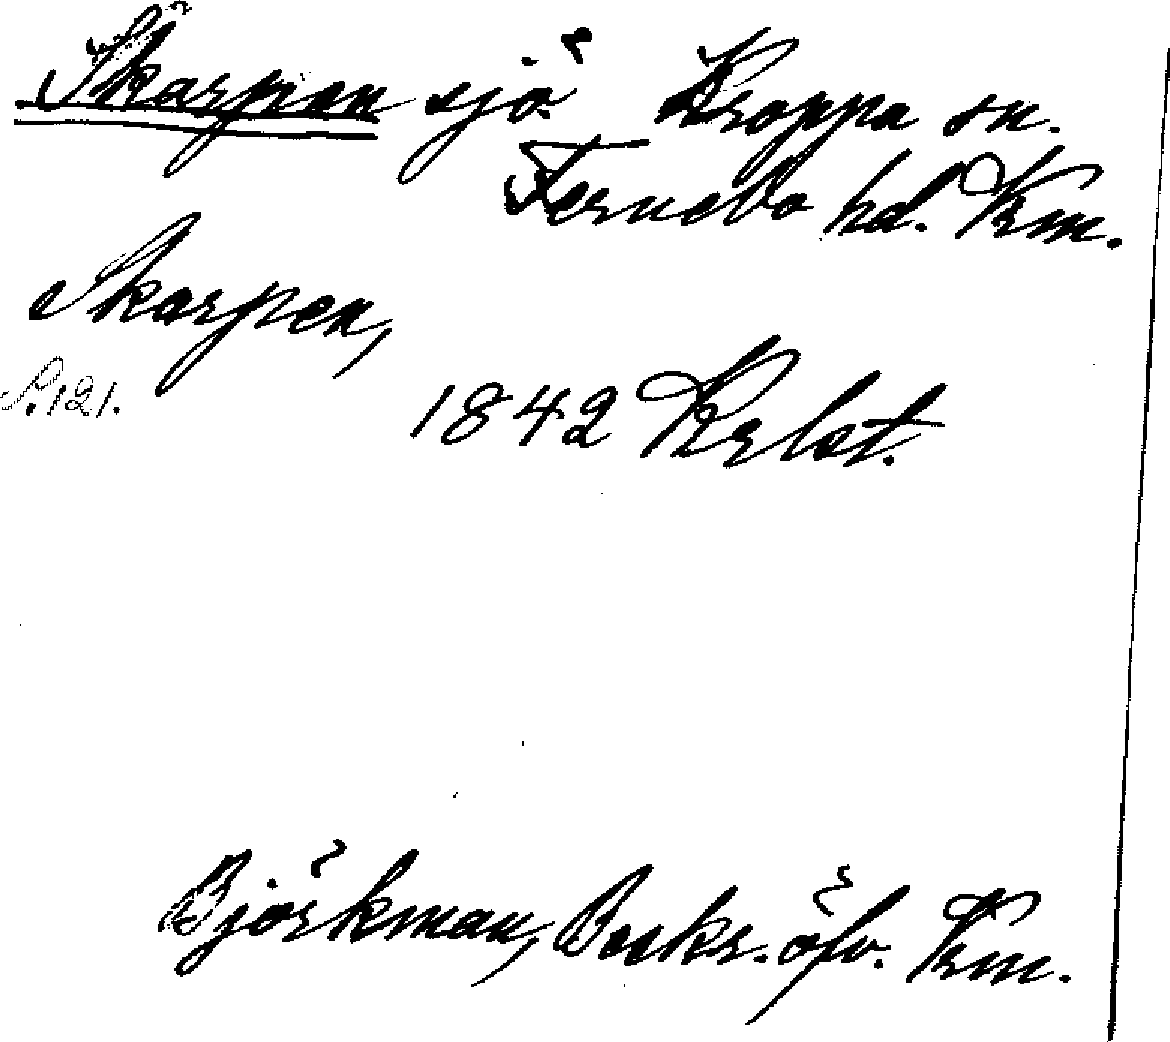 Skärpen sjö Kroppa sn.
Fernebo hd. Vrm.
Skarpen,
S. 121.
1842 Krlst.
Björkman, Beskr. öfv. Vrm.